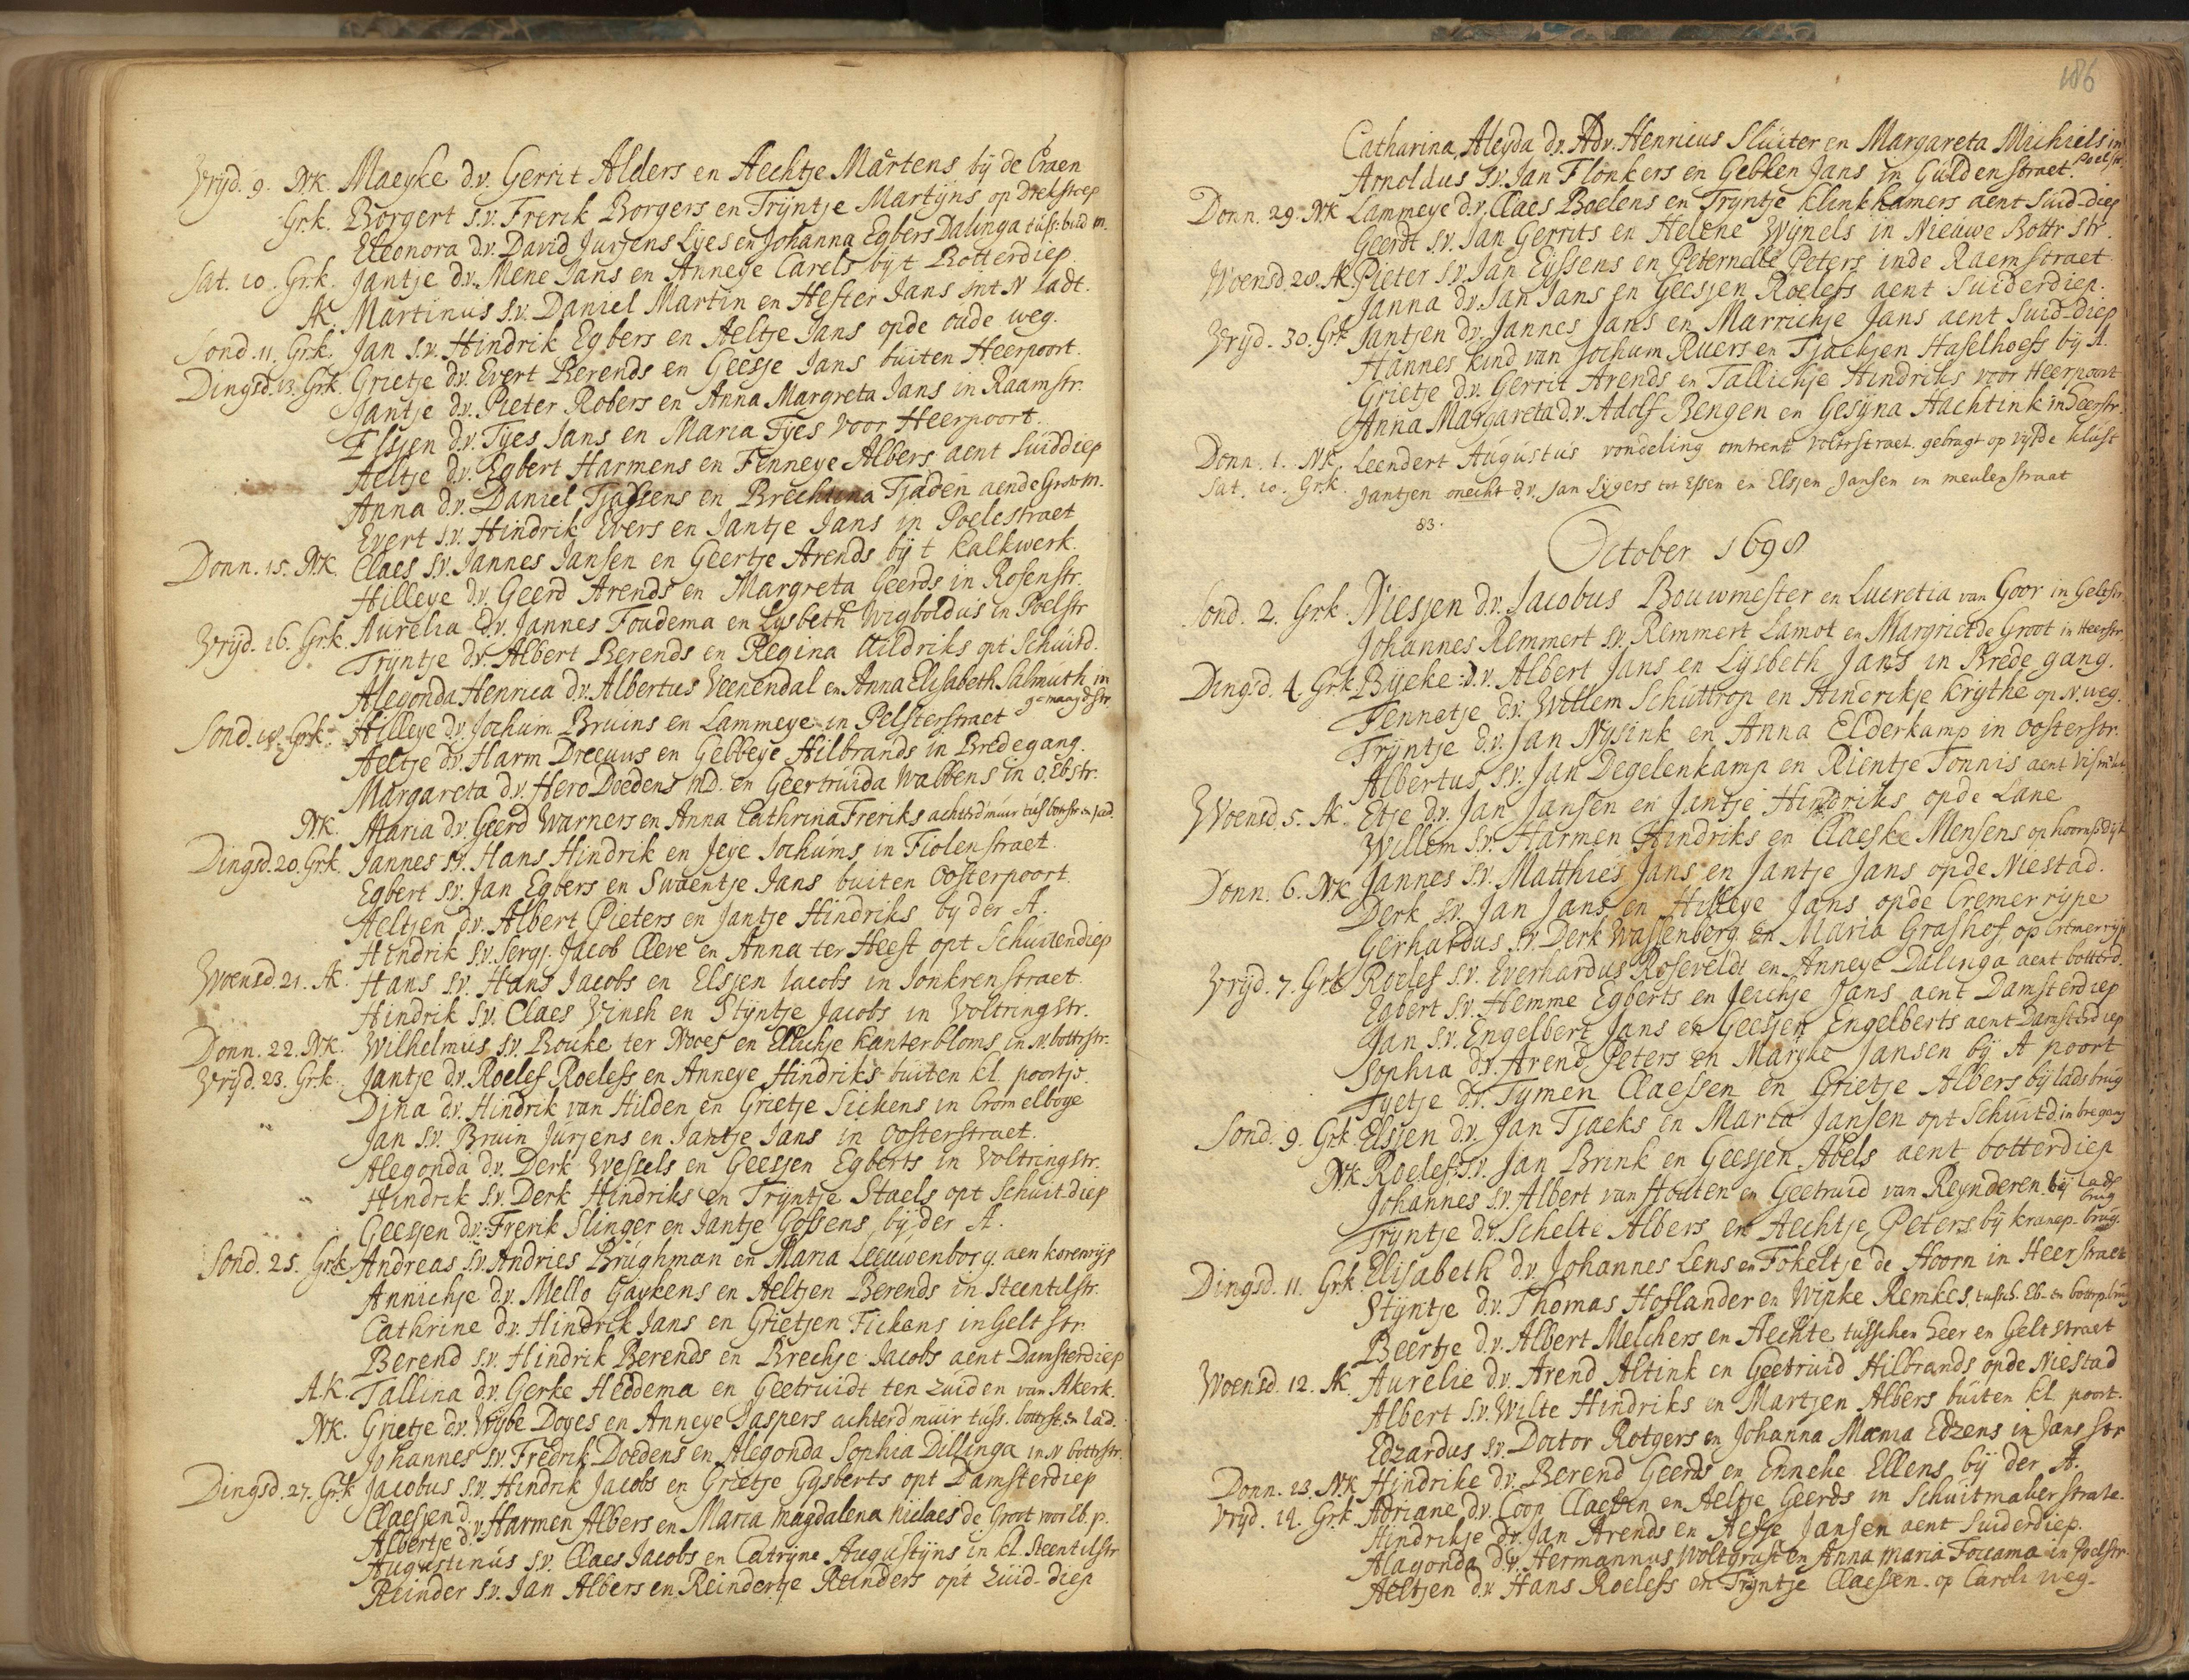 Vrijd. 9. NK. Maeyke d.v. Gerrit Alders en Aechtje Martens bij de Craen
Grk. Borgert s.v. Frerik Borgers en Trijntje Martijns op Drekstoep
Eleonora d.v. David Jurjens Lijes en Johanna Egbers Dalinga tuss: buld m.
Sat. 10. Grk. Jantje d.v. Mene Jans en Anneye Carels bij t Botterdiep.
AK. Martinus s.v. Daniel Martin en Hester Jans int N Iadt.
Sond. 11. Grk. Jan s.v. Hindrik Egbers en Aeltje Jans opde oude weg.
Dingsd. 13. Grk. Grietje d.v. Evert Berends en Geesje Jans buiten Heerpoort.
Jantje d.v. Pieter Robers en Anna Margreta Jans in Raamstr.
Elsjen d.v. Tijes Jans en Maria Tijes voor Heerpoort.
Aeltje d.v. Egbert Harmens en Fenneye Albers aent Suiddiep
Anna d.v. Daniel Tjassens en Brechtina Tjaden aende Grotem.
Evert s.v. Hindrik Evers en Jantje Jans in Poelestraet
Donn. 15. NK. Claes s.v. Jannes Jansen en Geertje Arends bij t Kalkwerk.
Hilleye d.v. Geerd Arends en Margreta Geerds in Rosenstr.
Vrijd. 16. Grk. Aurelia d.v. Jannes Foudema en Lysbeth Wigboldus in Poelstr
Trijntje d.v. Albert Berends en Regina Aildriks opt Schuitd.
Alegonda Henrica d.v. Albertus Veenendal en Anna Elisabeth Salmuth in
gemaagdstr
Sond. 18. Grk. Hilleye d.v. Jochum Bruins en Lammeye in Pelsterstraet
Aeltje d.v. Harm Dreeuws en Gebbeye Hilbrands in Bredegang.
Margareta d.v. Hero Doedens MD. en Geertruida Wabbens in O. Ebstr.
NK. Maria d.v. Geerd Warners en Anna Cathrina Freriks achterd muur tuss bottstr en Jad.
Dingsd. 20. Grk. Jannes s.v. Hans Hindrik en Jeye Jochums in Fiolenstraet.
Egbert s.v. Jan Egbers en Swaentje Jans buiten Oosterpoort.
Aeltjen d.v. Albert Pieters en Jantje Hindriks bij der A.
Hindrik s.v. Sergj. Jacob Cleve en Anna ter Heest opt Schuitendiep
Woensd. 21. AK. Hans s.v. Hans Jacobs en Elsjen Jacobs in Jonkrenstraet.
Hindrik s.v. Claes Vinsh en Stijntje Jacobs in Voltringstr.
Donn. 22. NK. Wilhelmus s.v. Bouke ter Nooes en Ellichje Kanterbloms in N. bottrstr.
Vrijd. 23. Grk. Jantje d.v. Roelef Roelefs en Anneye Hindriks buiten kl. poortje.
Djna d.v. Hindrik van Hilden en Grietje Sickens in Cromelboge
Jan s.v. Bruin Jurjens en Jantje Jans in Oosterstraet.
Alegonda d.v. Derk Wessels en Geesjen Egberts in Voltringstr.
Hindrik s.v. Derk Hindriks en Trijntje Staels opt Schuit.diep
Geesjen d.v. Frerik Slinger en Jantje Gossens, bij der A.
Sond. 25. Grk. Andreas s.v. Andries Brughman en Maria Leeuwenborg. aen korenrijp
Annichje d.v. Mello Gaykens en Aeltjen Berends in Steentilstr.
Cathrine d.v. Hindrik Jans en Grietjen Fickens in Geltstr.
Berend s.v. Hindrik Berends en Brechje Jacobs aent Damsterdiep
A.K. Tallina d.v. Gerke Heddema en Geetruidt ten Zuiden van Akerk.
NK. Grietje d.v. Wijbe Doyes en Anneye Jaspers achterd muir tuss. bottrst. en Iad.
Johannes s.v. Fredrik Doedens en Alegonda Sophia Dillinga in N bottrstr.
Dingsd. 27. Grk Jacobus s.v. Hindrik Jacobs en Grietje Gijsberts opt Damsterdiep
Claesjen d.
Albertje d. v. Harmen Albers en Maria Magdalena Niclaes de Groot voor Eb. p.
Augustinus s.v. Claes Jacobs en Catrijne Augustijns in kl. Steentilstr
Reinder s.v. Jan Albers en Reindertje Reinders opt Zuid-diep
186
Catharina Aleyda d.v. Adv. Henricus Sluiter en Margareta Michiels in
Poelstr.
Arnoldus s.v. Jan Flonkers en Gebken Jans in Guldenstraet.
Donn. 29. NK Lammeye d.v. Claes Boelens en Trijntje Klinkhamers aent Suid-diep
Geerdt s.v. Jan Gerrits en Helene Wijnels in Nieuwe Bottr str.
Woensd. 28. AK. Pieter s.v. Jan Eyssens en Peternelle Peters inde Raemstraet
Janna d.v. Jan Jans en Geesjen Roelefs aent Suiderdiep.
Vrijd. 30. Grk Jantjen d.v. Jannes Jans en Marrichje Jans aent Suid-diep
Hannes kind van Jochum Ruers en Tjaekjen Haselhoefs bij A.
Grietje d.v. Gerrit Arends en Tallichje Hindriks voor Heerpoort
Anna Margareta d.v. Adolf Bengen en Gesijna Hachtink in Heerstr.
Donn. 1. NK. Leendert Augustus vondeling omtrent volterstraet. gebragt op vijfde kluft
Sat. 10. Grk. Jantjen onecht d.v. Jan Lygers tot Essen en Elsjen Jansen in meulenstraat
83.
October 1698
Sond. 2. Grk. Niesjen d.v. Jacobus Bouwmester en Lucretia van Goor in Geltstr.
Johannes Remmert s.v. Remmert Lamot en Margriet de Groot in Heerstr
Dingsd. 4. Grk. Bijeke d.v. Albert Jans en Lijsbeth Jans in Brede gang.
Fennetje d.v. Willem Schuttrop en Hinderikje Krijthe op N. weg.
Trijntje d.v. Jan Nijsink en Anna Elderkamp in Oosterstr.
Albertus s.v. Jan Degelenkamp en Rientje Tonnis aent Vism.
Woensd. 5. AK. Etje d.v. Jan Jansen en Jantje Hindriks opde Lane
Willem s.v. Harmen Hindriks en Claeske Mensens op hoornsdijk
Donn. 6. NK Jannes s.v. Matthies Jans en Jantje Jans opde Niestad.
Derk s.v. Jan Jans en Hilleye Jans opde Cremerrijpe
Gerhardus s.v. Derk Wassenborg en Maria Grashof op Crimerrijp
Vrijd. 7. Grk Roelef s.v. Everhardus Roseveldt en Anneye Dalinga aent botterd.
Egbert s.v. Hemme Egberts en Jeichje Jans aent Damsterdiep
Jan s.v. Engelbert Jans en Geesjen Engelberts aent Damsterdiep
Sophia d.v. Arend Peters en Marijke Jansen bij A poort
Tyetje d.v. Tymen Claessen en Grietje Albers bij Iadsbrug
Sond. 9. Grk. Elssjen d.v. Jan Tjaeks en Maria Jansen opt Schuitd. in bregang
NK Roelef s.v. Jan Brink en Geesjen Abels aent botterdiep
Johannes s.v. Albert van Houten en Geetruid van Reynderen bij Iads
brug
Trijntje d.v. Schelte Albers en Aechtje Peters bij kranep-brug.
Dingsd. 11. Grk. Elisabeth d.v. Johannes Lens en Fokeltje de Hoorn in Heerstraet
Stijntje d.v. Thomas Hoflander en Wipke Remkes, tussch. Eb- en bottrp.brug
Beertje d.v. Albert Melchers en Aechte, tusschen heer en Gelt straet
Woensd. 12. AK. Aurelie d.v. Arend Altink en Geetruid Hilbrands opde Niestad
Albert s.v. Wilte Hindriks en Martjen Albers buiten kl. poort.
Edzardus s.v. Doctor Rotgers en Johanna Mama Edzens in Jans str
Donn. 13. NK Hindrike d.v. Berend Geerds en Enneke Ellens bij der A.
Vrijd. 14. Grk. Adriane d.v. Coop Claessen en Aeltje Geerds in Schuitmakerstrate.
Hindrikje d.v. Jan Arends en Aefje Jansen aent Suiderdiep.
Alagonda d.v. Hermannus Woltgraft en Anna Maria Foccama in Poelstr.
Aeltjen d.v. Hans Roelefs en Trijntje Claessen. op Caroli weg.